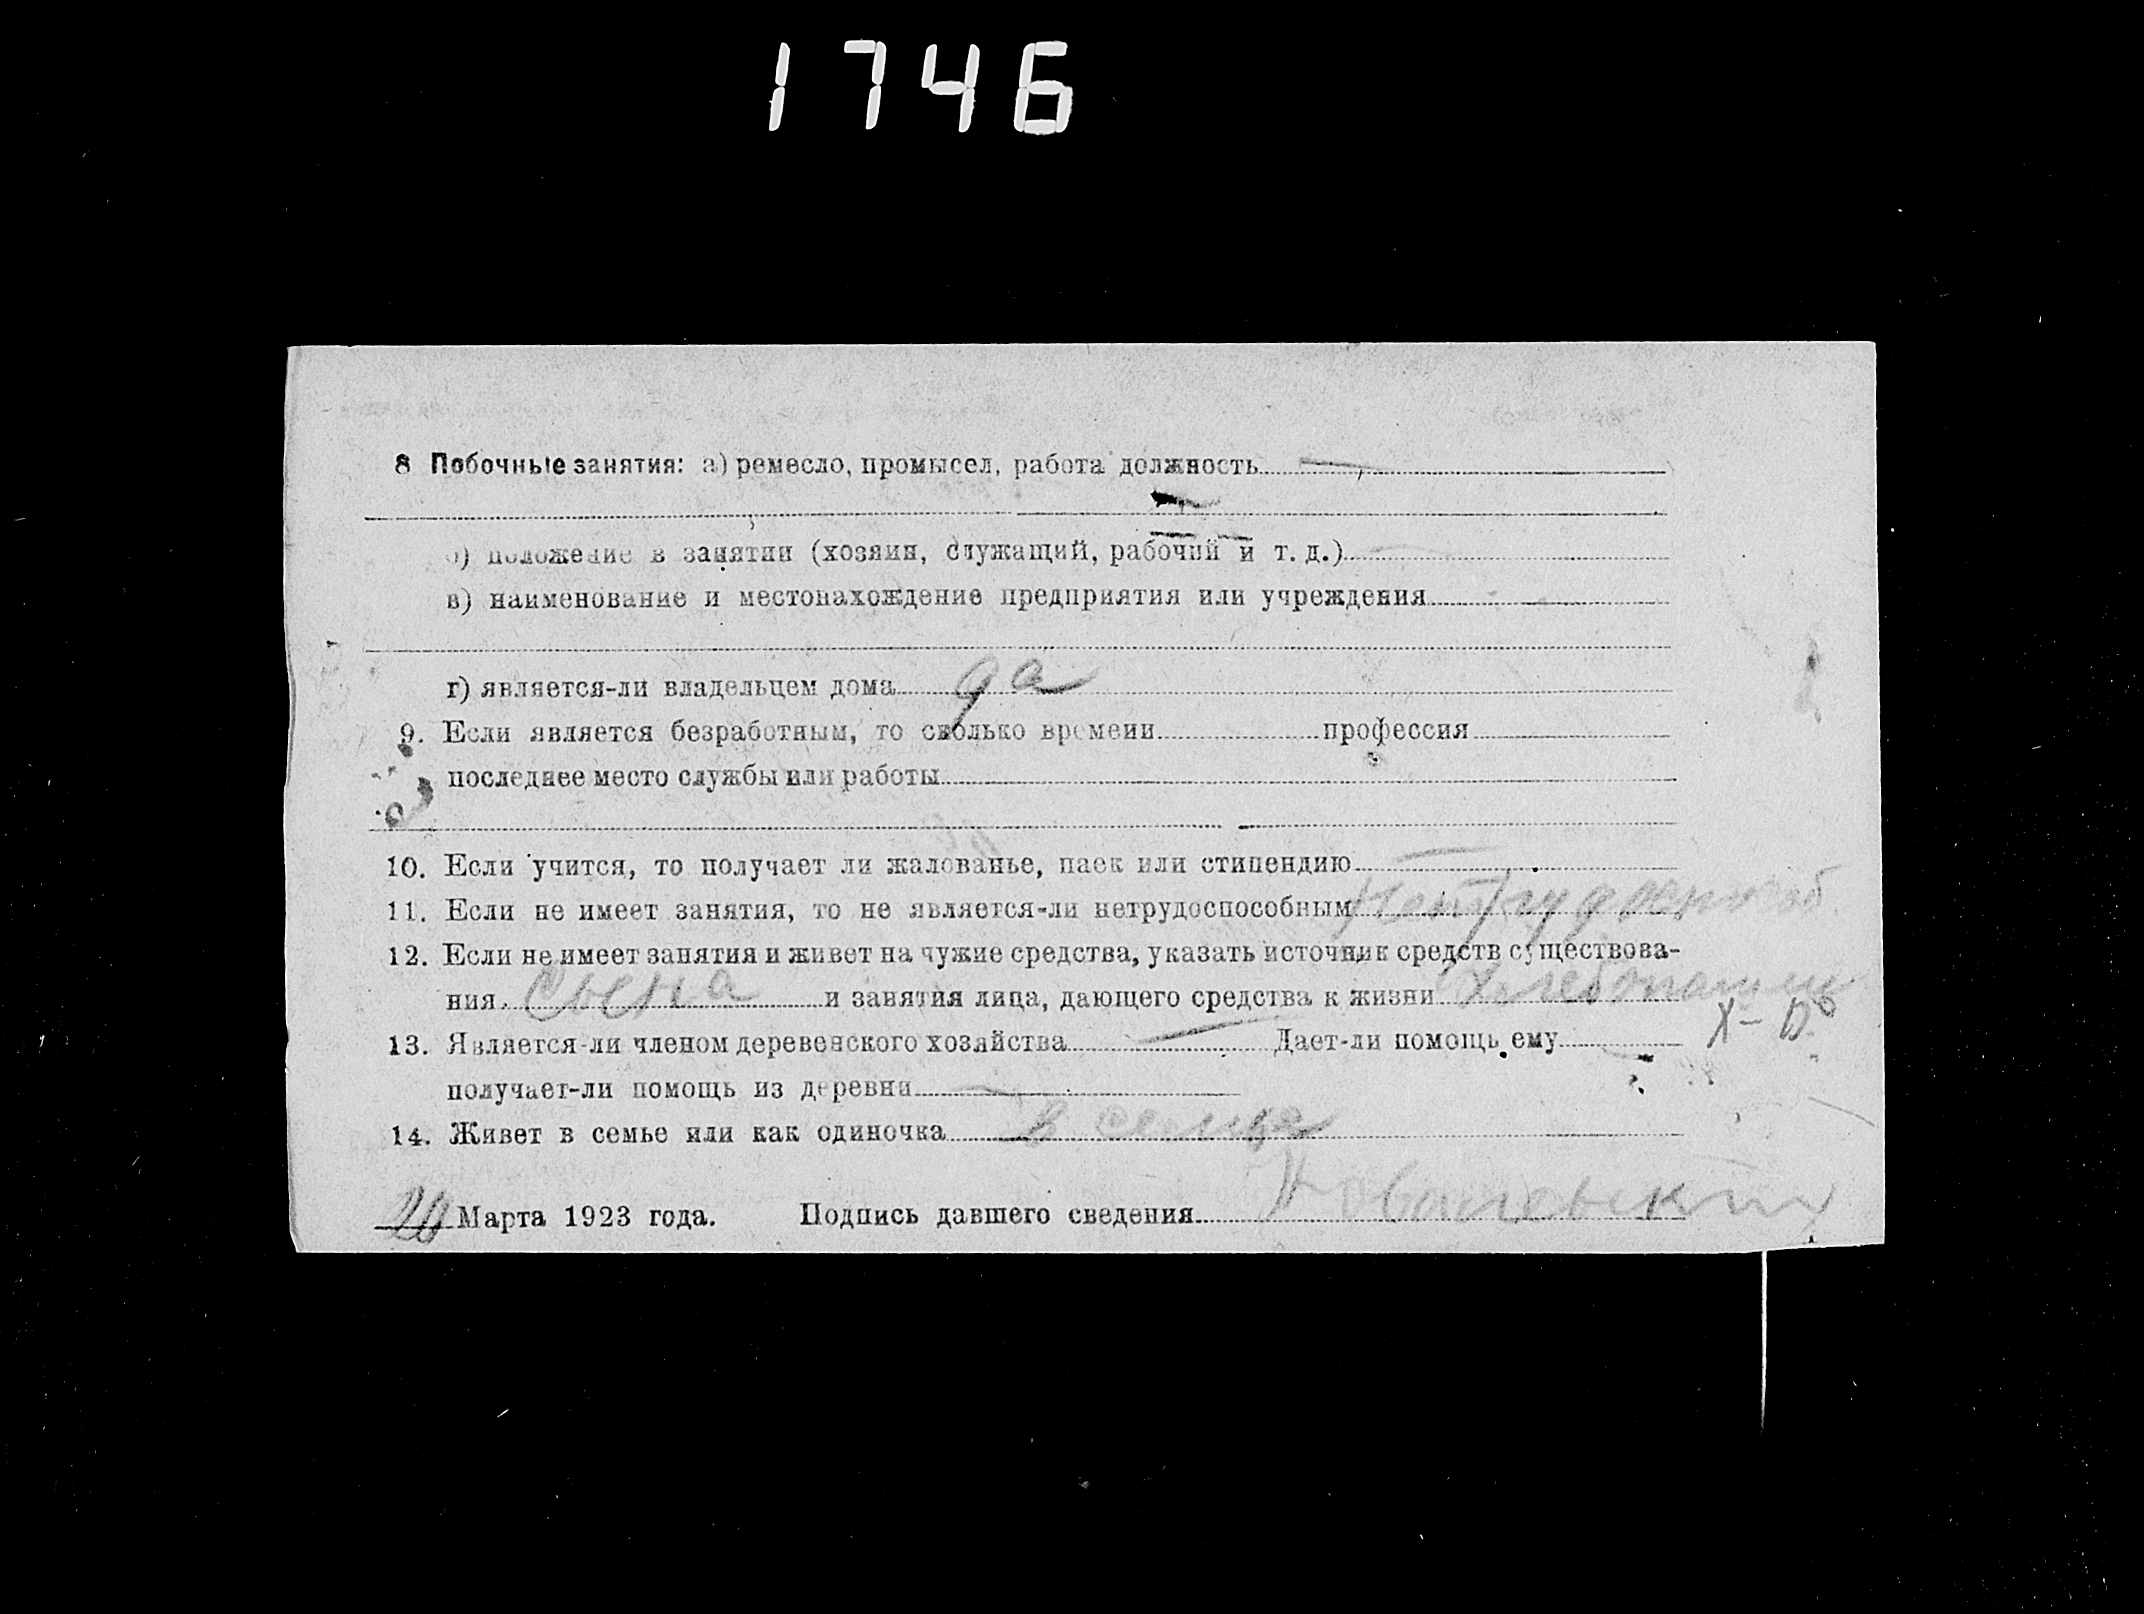 1746
8 Побочные занятия: а) ремесло, промысел, работа должность —
б) положение в занятии (хозяин, служащий, рабочий и т. д.)
в) наименование и местонахождение предприятия или учреждения
г) является-ли владельцем дома да
9. Если является безработным, то сколько времени профессия
последнее место службы или работы
10. Если учится, то получает ли жалованье, паек или стипендию —
11. Если не имеет занятия, то не является-ли нетрудоспособным
12. Если не имеет занятия и живет на чужие средства, указать источник средств существова-
ния. Сына и занятия лица, дающего средства к жизни
13. Является-ли членом деревенского хозяйства — Дает-ли помощь ему
получает-ли помощь из деревни —
14. Живет в семье или как одиночка в семье
Марта 1923 года. Подпись давшего сведения